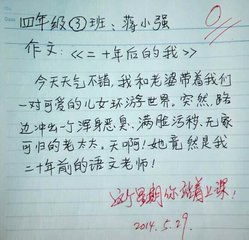 四年级③班:蒋小强
作文:<<二十年后的我>>
今天天气不错,我和老婆带着我们
一对可爱的儿女环游世界。突然,路
边冲出一个浑身恶臭、满脏污秽、无家
可归的老太太。天啊!她竟然是我
二十年前的语文老师!
这个星期你站着上课!
2014.5.29.